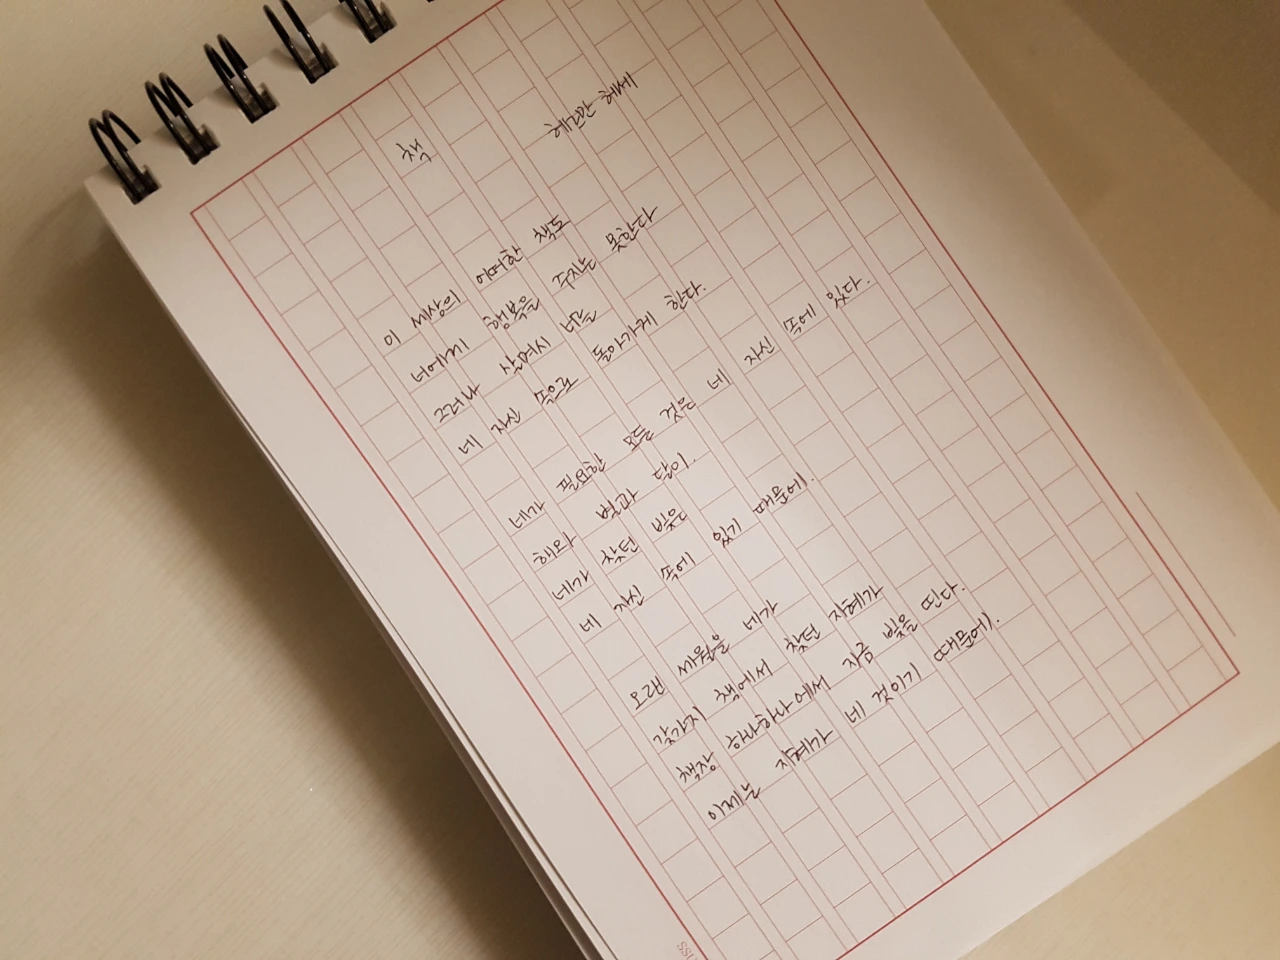 책
헤르만 헤세
이 세상의 어떠한 책도
너에게 행복을 주지는 못한다
그러나 살며시 너를
네 자신 속으로 돌아가게 한다.
네가 필요한 모든 것은 네 자신 속에 있다.
해와 별과 달이.
네가 찾던 빛은
네 자신 속에 있기 때문에.
오랜 세월을 네가
갖가지 책에서 찾던 지혜가
책장 하나하나에서 지금 빛을 띤다.
이제는 지혜가 네 것이기 때문에.